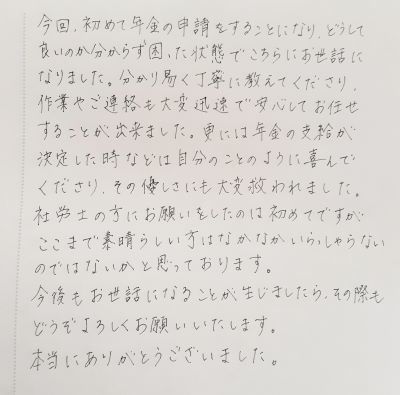 今回、初めて年金の申請をすることになり、どうして
良いのか分からず困った状態でこちらにお世話に
なりました。分かり易く丁寧に教えてくださり、
作業やご連絡も大変迅速で安心してお任せ
することが出来ました。更には年金の支給が
決定した時などは自分のことのように喜んで
くださり、その優しさにも大変救われました。
社労士の方にお願いをしたのは初めてですが、
ここまで素晴らしい方はなかなかいらっしゃらない
のではないかと思っております。
今後もお世話になることが生じましたら、その際も
どうぞよろしくお願いいたします。
本当にありがとうございました。